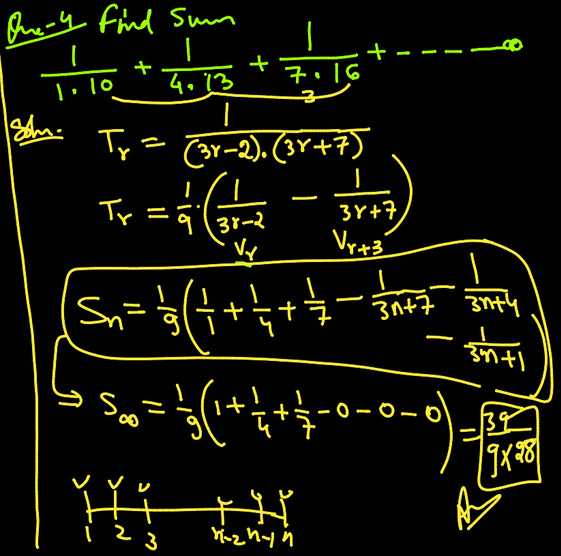 Que-4 Find Sum
1/(1·10) + 1/(4·13) + 1/(7·16) + ---- ∞
3
Soln. T_r = 1/((3r-2)·(3r+7))
T_r = 1/9·(1/(3r-2) - 1/(3r+7))
V_r V_{r+3}
S_n = 1/9(1/1 + 1/4 + 1/7 - 1/(3n+7) - 1/(3n+4) - 1/(3n+1))
⇒ S_∞ = 1/9(1 + 1/4 + 1/7 - 0 - 0 - 0) = 39/(9×28)
Ans
1 2 3 n-2 n-1 n